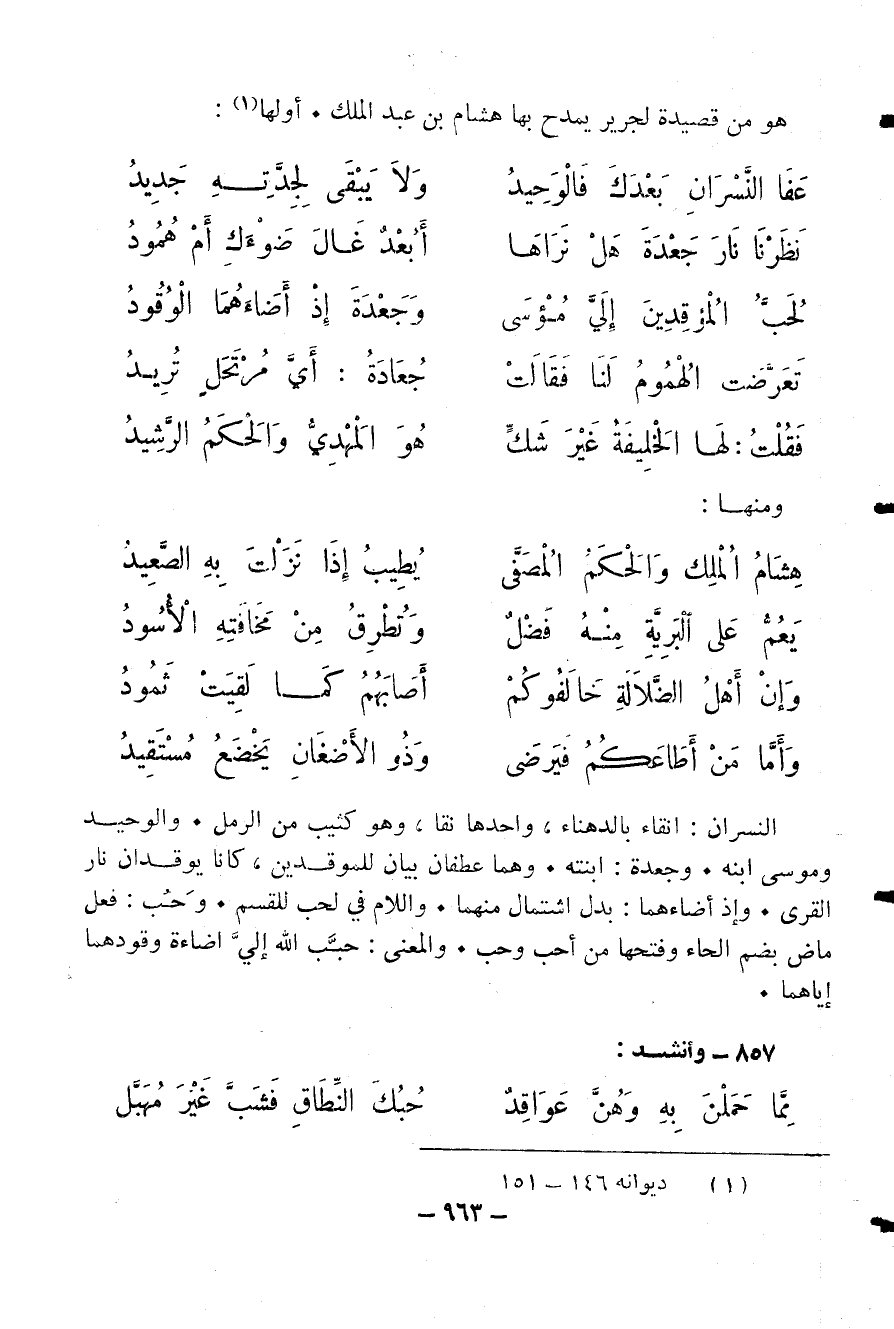 هو من قصيدة لجرير يمدح بها هشام بن عبد الملك ٠ أولها(١) :
عَفَا النَّسْرَانِ بَعْدَكَ فَالْوَحِيدُ وَلاَ يَبْقَى لِجِدَّتِــهِ جَدِيدُ
نَظَرْنَا نَارَ جَعْدَةَ هَلْ نَرَاهَـا أَبُعْدٌ غَـالَ ضَوْءَكِ أَمْ هُمُودُ
لَحُبَّ الْمُؤقِدِينَ إِلَيَّ مُـؤْسَى وَجَعْدَةَ إِذْ أَضَاءَهُمَا الْوُقُودُ
تَعَرَّضَت الْهُمُومُ لَنَا فَقَالَتْ جُعَادَةُ : أَيَّ مُرْتَحَلٍ تُرِيــدُ
فَقُلْتُ : لَهـا الخَلِيفَةُ غَيْرَ شَكٍّ هُوَ الْمَهْدِيُّ وَالحَكَمُ الرَّشِيدُ
ومنهــا :
هِشَامُ اُلْمَلِك وَالحَكَمُ الْمُصَفَّى يُطِيبُ إِذَا نَزَلْتَ بِهِ الصَّعِيدُ
يَعُمُّ عَلى اَلْبَرِيَّةِ مِنْـهُ فَضْلٌ وَتُطْرِقُ مِنْ مَخَافَتِهِ الْأُسُودُ
وَإِنْ أَهْلُ الضَّلاَلَةِ خَالَفُوكُمْ أَصَابَهُمُ كَمَــا لَقِيَتْ ثَمُودُ
وَأَمَّا مَنْ أَطَاعَكُمُ فَيَرْضَى وَذُو الأَضْغَانِ يَخْضَعُ مُسْتَقِيدُ
النسران : انقاء بالدهناء ، واحدها نقا ، وهو كثيب من الرمل ٠ والوحيــد
وموسى ابنه ٠ وجعدة : ابنته ٠ وهما عطفان بيان للموقــدين ، كانا يوقــدان نار
القرى ٠ وإذ أضاءهما : بدل اشتمال منهما ٠ واللام في لحب للقسم ٠ وحُب : فعل
ماض بضم الحاء وفتحها من أحب وحب ٠ والمعنى : حبَّب الله إليَّ اضاءة وقودهما
إياهما ٠
٨٥٧ – وأنشــد :
مِمَّا حَمَلْنَ بِهِ وَهُنَّ عَوَاقِدٌ حُبُكَ النِّطَاقِ فَشَبَّ غَيْرَ مُهَبَّل
(١) ديوانه ١٤٦ – ١٥١
– ٩٦٣ –